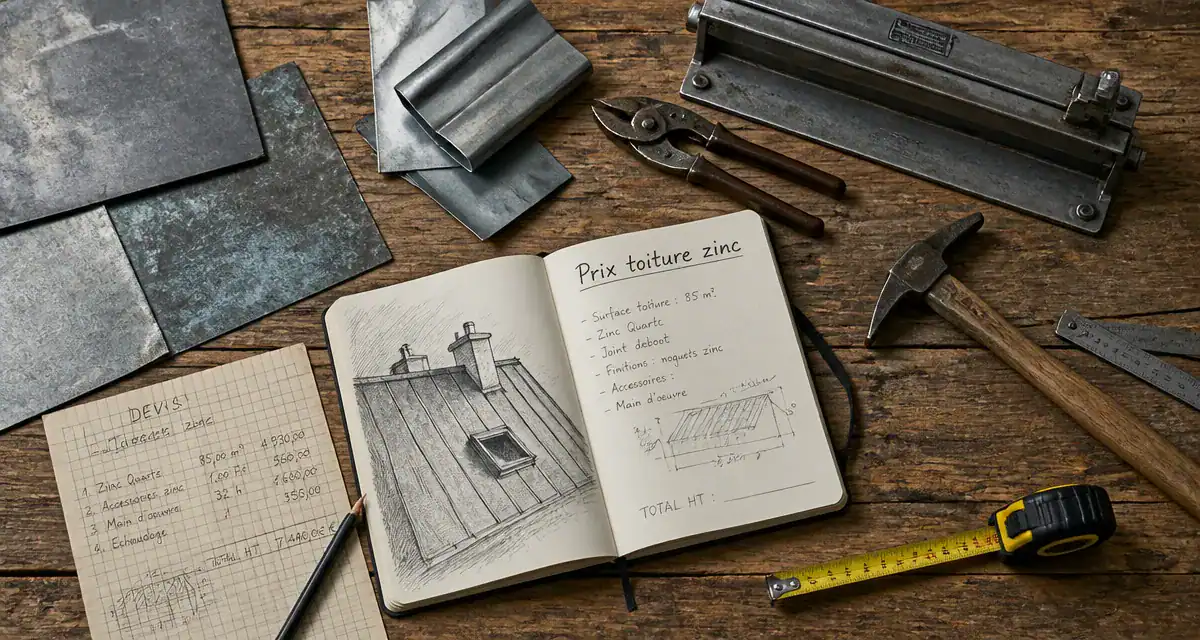 DEVIS
zinc
1. Zinc Quartz 85,00 m² 4 930,00
2. Accessoires zinc 1,00 560,00
3. Main d'oeuvre 32 h 1 600,00
4. Echaudage 350,00
HT
Prix toiture zinc
- Surface toiture : 85 m².
- Zinc Quartz
- Joint debout
- Finitions : noquets zinc
- Accessoires :
- Main d'oeuvre
TOTAL HT :